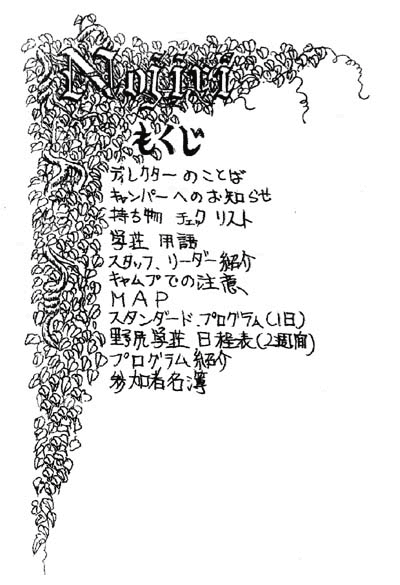 Noiiri
もくじ
ディレクターのことば
キャンパーへのお知らせ
持ち物 チェック リスト
学荘 用語
スタッフ、リーダー紹介
キャムプでの注意
MAP
スタンダード.プログラム(1日)
野尻学荘 日程表(2週間)
プログラム紹介
参加者名簿